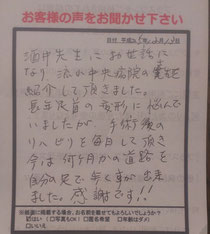 お客様の声をお聞かせ下さい
日付 平成 年 月 日
酒井先生にお世話に
なり 中央病院の
紹介して頂きました。
長年足首の変形に悩んで
いましたが 手術後の
リハビリを毎日して頂き
今は 何ヶ月かの道路を
自分の足で歩く事が出来
ました。感謝です!!
※紙面に掲載する場合、お名前を載せてもよろしいでしょうか?
□はい(□写真もok) □匿名希望 □年齢はダメ
□いいえ